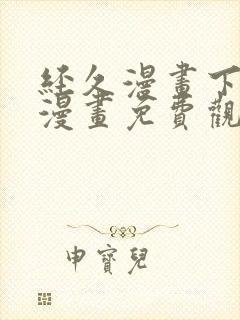 經久漫畫下
漫畫免費觀
申寶兒